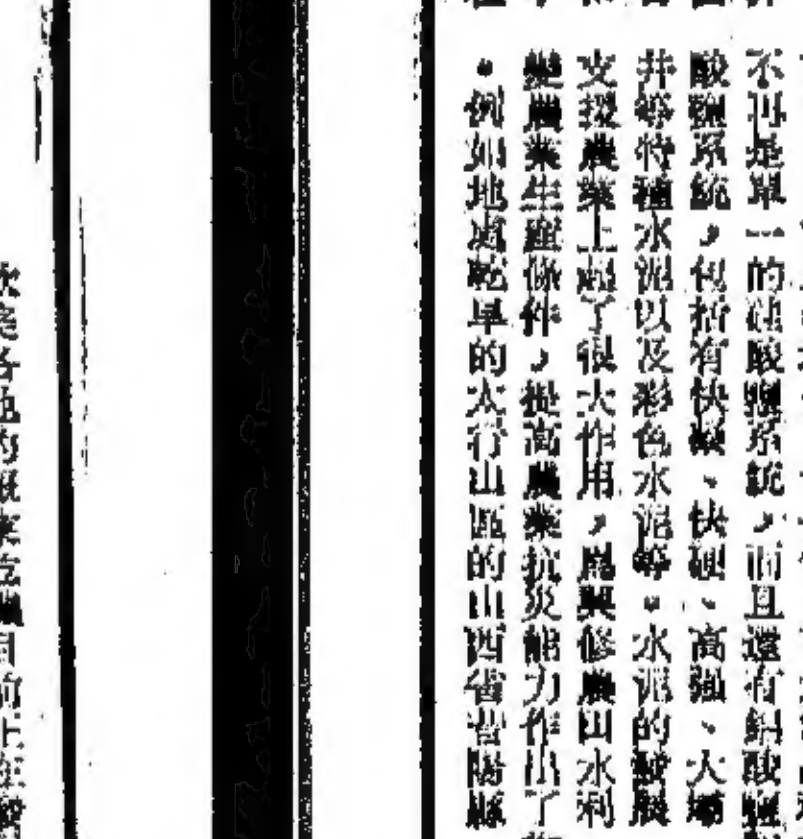 不再是單一的硅酸鹽系統，而且還有鋁酸鹽
酸鹽系統，包括有快凝、快硬、高強、大壩
井等特種水泥以及彩色水泥等。水泥的發展
支援農業上起了很大作用，爲興修農田水利
變農業生產條件，提高農業抗災能力作出了
。例如地處乾旱的太行山區的山西省昔陽縣
各地的
目前正在